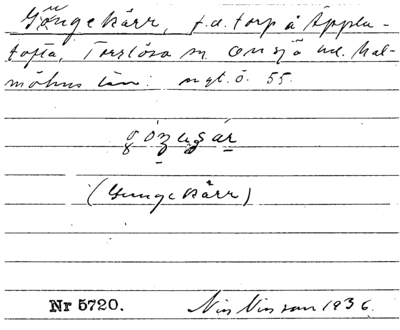 Göngekärr, f.d. torp å Äppla-
tofta, Torrlösa sn. Onsjö hd. Mal-
möhus län. mgt. ö. 55.
(Gungekärr)
Nr 5720. Nils Nilsson 1936.